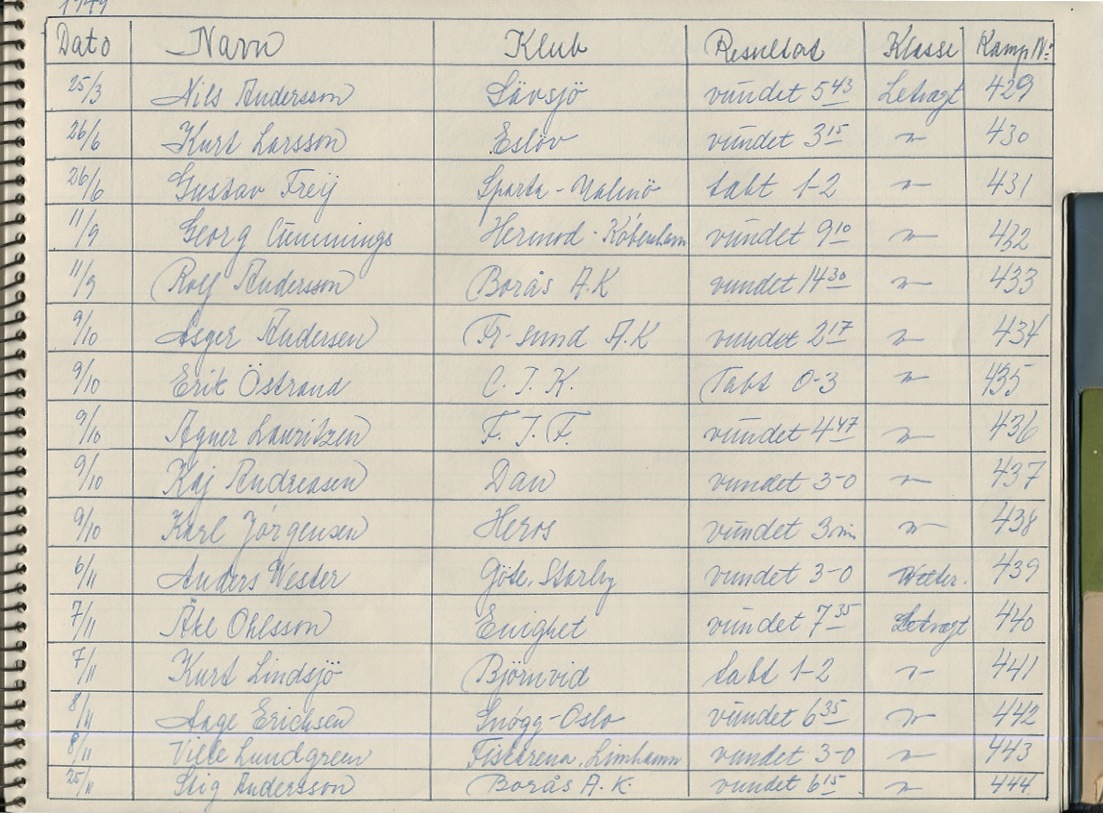 1949
Dato Navn Klub Resultat Klasse Kamp Nr.
25/3 Nils Andersson Sävsjö vundet 5 43 Letvægt 429
26/6 Kurt Larsson Eslöv vundet 3 15 " 430
26/6 Gustav Freij Sparta - Malmö tabt 1-2 " 431
11/9 Georg Cummings Hermod - København vundet 9 10 " 432
11/9 Rolf Andersson Borås A.K vundet 14 30 " 433
9/10 Asger Andersen Fr-sund A.K vundet 2 17 " 434
9/10 Erik Östrand C. I. K. Tabt 0-3 " 435
9/10 Agner Lauritzen F. I. F. vundet 4 47 " 436
9/10 Kaj Andreasen Dan vundet 3-0 " 437
9/10 Karl Jörgensen Heros vundet 3 min " 438
6/11 Anders Wester Göte, Starby vundet 3-0 Welter. 439
7/11 Åke Ohlsson Enighet vundet 7 35 Letvægt 440
7/11 Kurt Lindsjö Björnvid tabt 1-2 " 441
8/11 Aage Erichsen Snögg - Oslo vundet 6 35 " 442
8/11 Ville Lundgren Fiskarena, Limhamn vundet 3-0 " 443
25/11 Stig Andersson Borås A.K. vundet 6 15 " 444